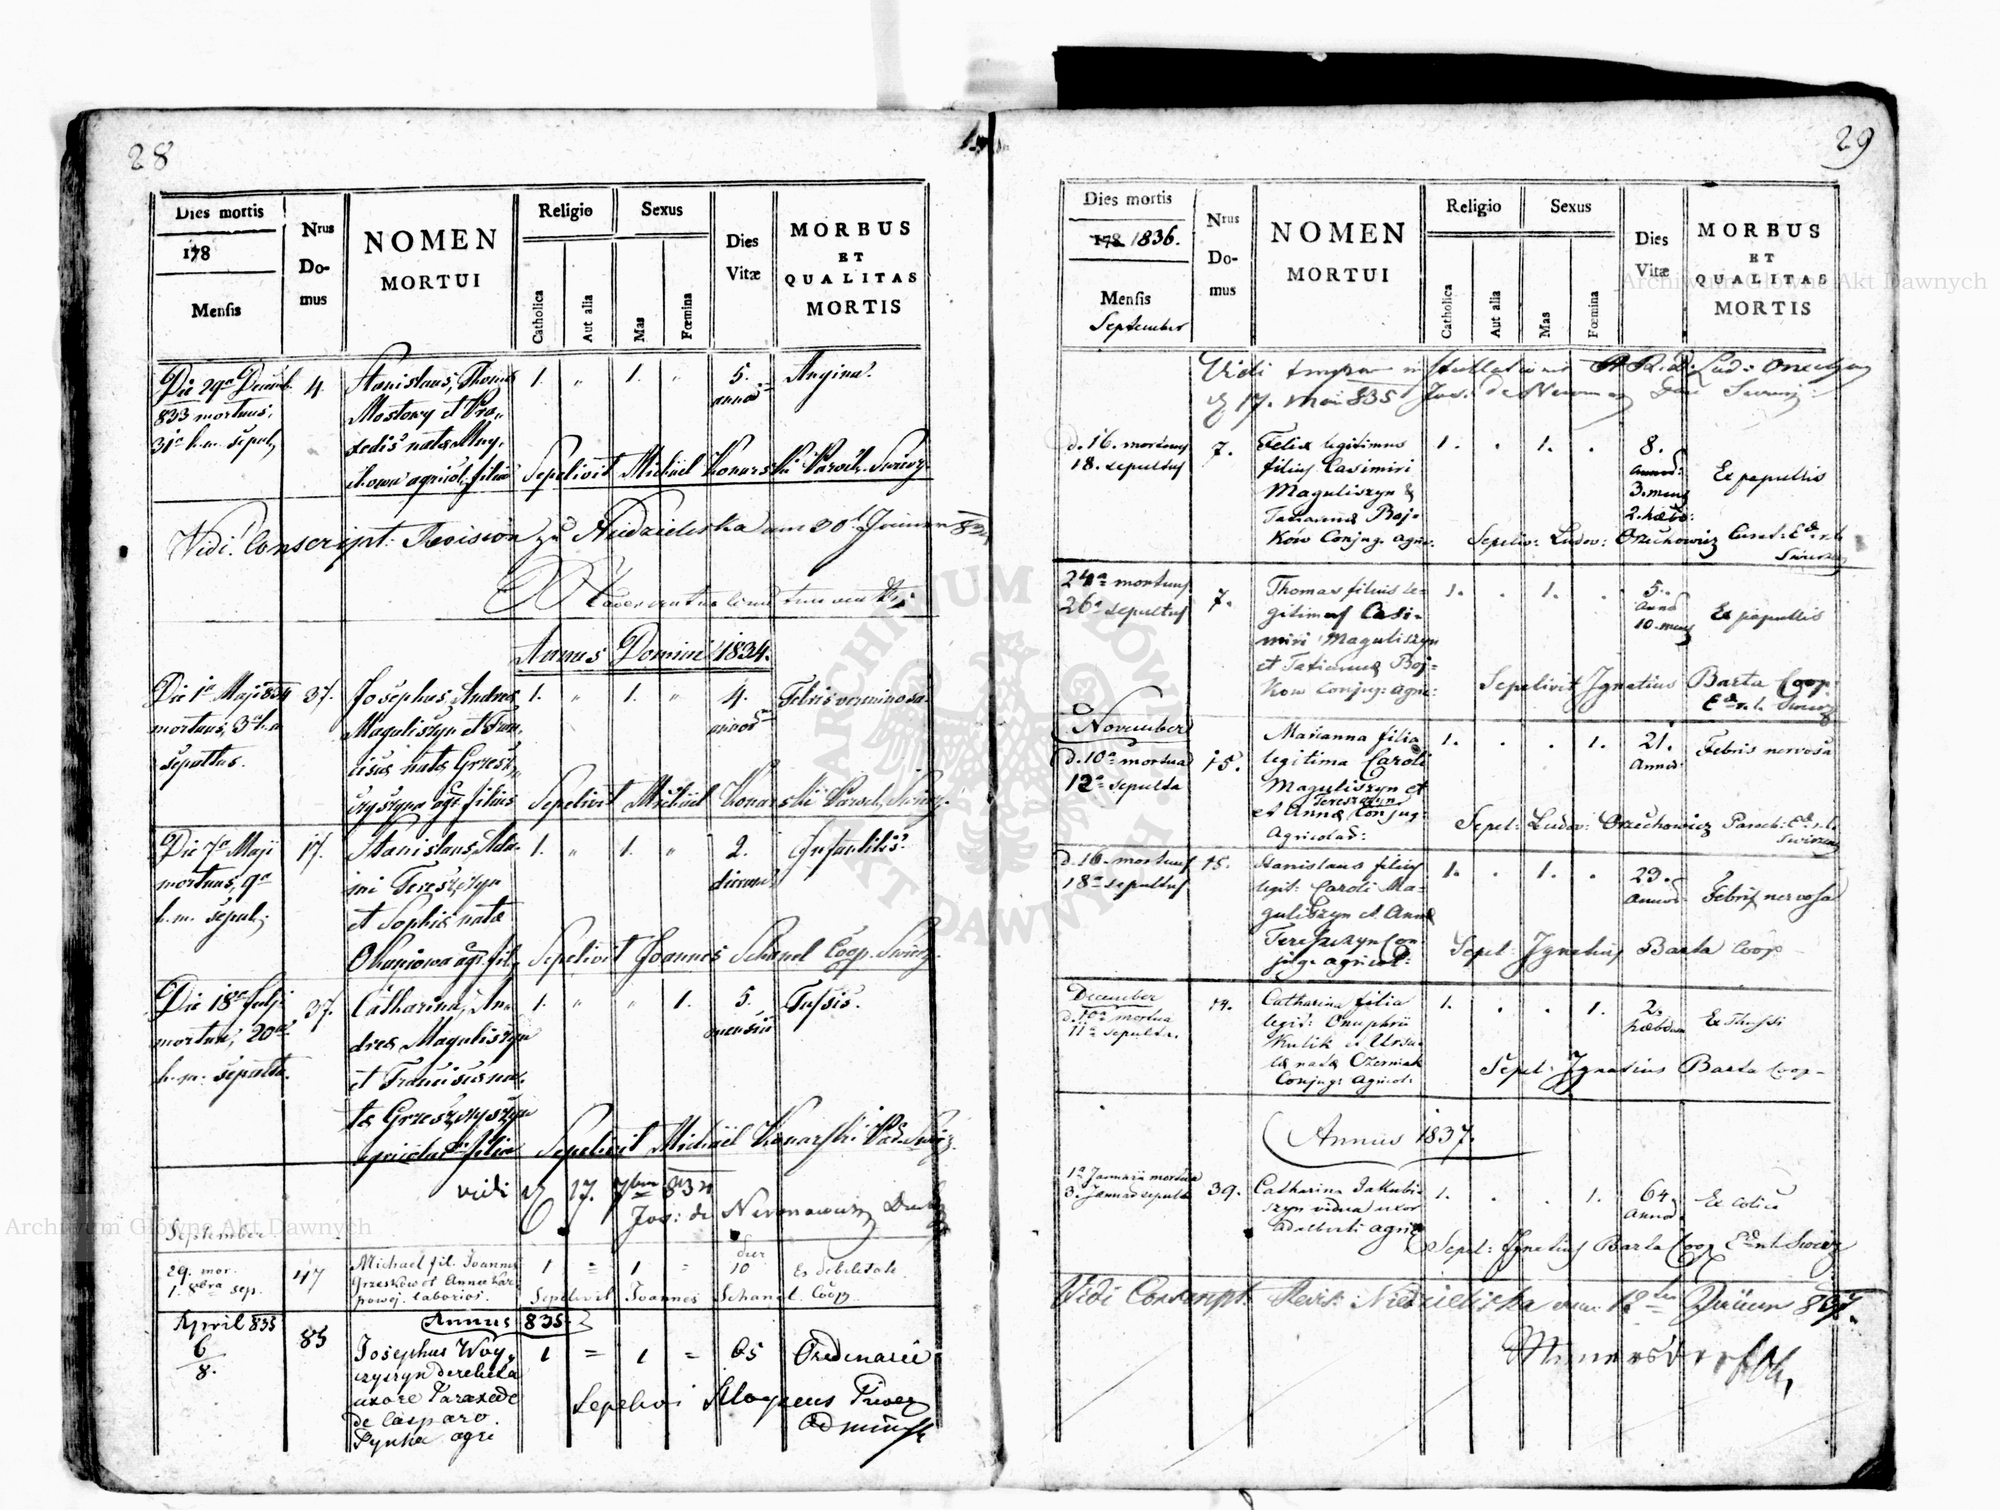 28
Dies mortis
178
Mensis
Nrus
Do-
mus
NOMEN
MORTUI
Religio
Catholica
Aut alia
Sexus
Mas
Fœmina
Dies
Vitæ
MORBUS
ET
QUALITAS
MORTIS
Die 29a Decemb.
833 mortuus,
31a h.m. sepul,
4.
Stanislaus, Thomæ
Mostowy et Pra-
xedis natæ
agricol. filius
1. " 1. "
5.
annor
Angina.
Sepelivit Michael Konarski Paroch. Swierz.
Vidi Conscript. Revision zu Niedzieliska am 20t
Annus Domini 1834.
Die 1a Maji 834
mortuus, 3a h.m
sepultus.
37.
Josephus, Andreæ
Maguliszyn et Fran-
ciscæ natæ Grzesz-
czyszyn agr. filius
1. " 1. "
4.
annor
Febris verminosa.
Sepelivit Michael Konarski Paroch. Swierz.
Die 7a Maji
mortuus, 9a
h.m. sepul,
17.
Stanislaus, Ada-
mi Tereszczyn
et Sophiæ natæ
agr. fil.
1. " 1. "
2.
dierum
Infantilis.
Sepelivit Joannes Schanel Coop. Swierz.
Die 18a Julji
mortua, 20a
h.m: sepulta.
37.
Catharina, An-
dreæ Maguliszyn
et Franciscæ na-
tæ Grzeszczyszyn
filia
1. " " 1.
5.
mensiu
Tussis.
Sepelivit Michael Konarski Par. Swierz.
vidi 17. 7bre 834
Jos: de Neronowicz
September
29. mor.
1. 8bra sep.
47
Michael fil. Joannis
Grzeskow et Annæ Kar
powej. laborios.
1 = 1 =
dier
10
Ex debilitate
Sepelivit Joannes Schanel Coop
Annus 835
April 835
6
8.
85
Josephus Woy-
czyszyn derelicta
uxore Paraxede
de Casparo.
Pynka agri
1 = 1 =
65
Ordinarii
Sepelivi Aloysius
Admin
29
Dies mortis
178 1836.
Mensis
September
Nrus
Do-
mus
NOMEN
MORTUI
Religio
Catholica
Aut alia
Sexus
Mas
Fœmina
Dies
Vitæ
MORBUS
ET
QUALITAS
MORTIS
Vidi
17. Mai 835 Jos. de
d. 16. mortuus
18. sepultus
7.
Felix legitimus
filius Casimiri
Maguliszyn &
Tatianna Boj-
Kow Conjug. agric.
1. . 1. .
8.
annor:
3. mens
2. hæbd:
Ex papullis
Sepeliv: Ludov: Orzechowicz
24a mortuus
26a sepultus
7.
Thomas filius le-
gitimus Casi-
miri Maguliszyn
et Tatiannæ Boj-
Kow Conjug: agric:
1. . 1. .
5.
Anno
10. mens
Ex papullis
Sepelivit Ignatius Barta Coop.
November
d. 10a mortua
12a sepulta
15.
Marianna filia
legitima Caroli
Maguliszyn et
Tereszczyn
et Annæ Conjug:
Agricolar:
1. . . 1.
21.
Annor
Febris nervosa
Sepel: Ludov: Orzechowicz Paroch:
d. 16. mortuus
18a sepultus
15.
Stanislaus filius
legit: Caroli Ma-
guliszyn et Annæ
Tereszczyn Con
jug. agricol:
1. . 1. .
23.
Annor
Febris nervosa
Sepel: Ignatius Barta Coop
December
d. 10a mortua
11a sepulta.
14.
Catharina filia
legit: Onuphrii
Kulik et Ursu-
læ natæ Czerniak
Conjug: Agricol:
1. . . 1.
2.
hæbdom
Ex Thussi
Sepel: Ignatius Barta Coop-
Annus 1837.
1a Januarii mortua
3. Januar sepulta
39.
Catharina Jakubi-
szyn vidua uxor
Adalberti agric
1. . . 1.
64.
Annor
Ex colica
Sepel: Ignatius Barta Coop
Vidi Conscript. Revis: Niedzieliska am 12ten
Archiwum Główne Akt Dawnych
Archiwum Główne Akt Dawnych
ARCHIWUM GŁÓWNE AKT DAWNYCH